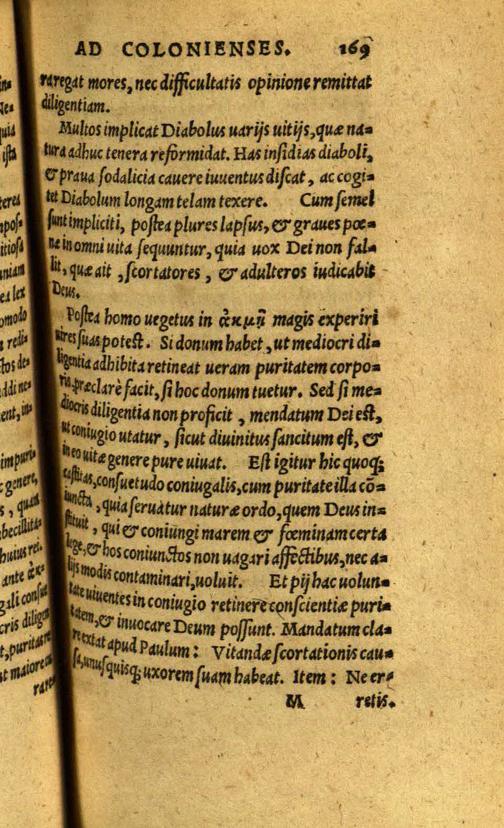 AD COLONIENSES. 169
raregat mores, nec difficultatis opinione remittat
diligentiam.
Multos implicat Diabolus uarijs uitijs, quæ na=
tura adhuc tenera reformidat. Has insidias diaboli,
& praua sodalicia cauere iuuentus discat, ac cogi=
tet Diabolum longam telam texere. Cum semel
sunt impliciti, postea plures lapsus, & graues pœ=
næ in omni uita sequuntur, quia uox Dei non fal=
lit, quæ ait, scortatores, & adulteros iudicabit
Deus.
Postea homo uegetus in ἀκμῇ magis experiri
uires suas potest. Si donum habet, ut mediocri di=
ligentia adhibita retineat ueram puritatem corpo=
ris, præclarè facit, si hoc donum tuetur. Sed si me=
diocris diligentia non proficit, mendatum Dei est,
ut coniugio utatur, sicut diuinitus sancitum est, &
in eo uitæ genere pure uiuat. Est igitur hic quoq;
castitas, consuetudo coniugalis, cum puritate illa cō=
iuncta, quia seruatur naturæ ordo, quem Deus in=
stituit, qui & coniungi marem & fœminam certa
lege, & hos coniunctos non uagari affectibus, nec a=
lijs modis contaminari, uoluit. Et pij hac uolun=
tate uiuentes in coniugio retinere conscientiæ puri=
tatem, & inuocare Deum possunt. Mandatum cla=
re extat apud Paulum: Vitandæ scortationis cau=
sa, unusquisq; uxorem suam habeat. Item: Ne er=
M retis.